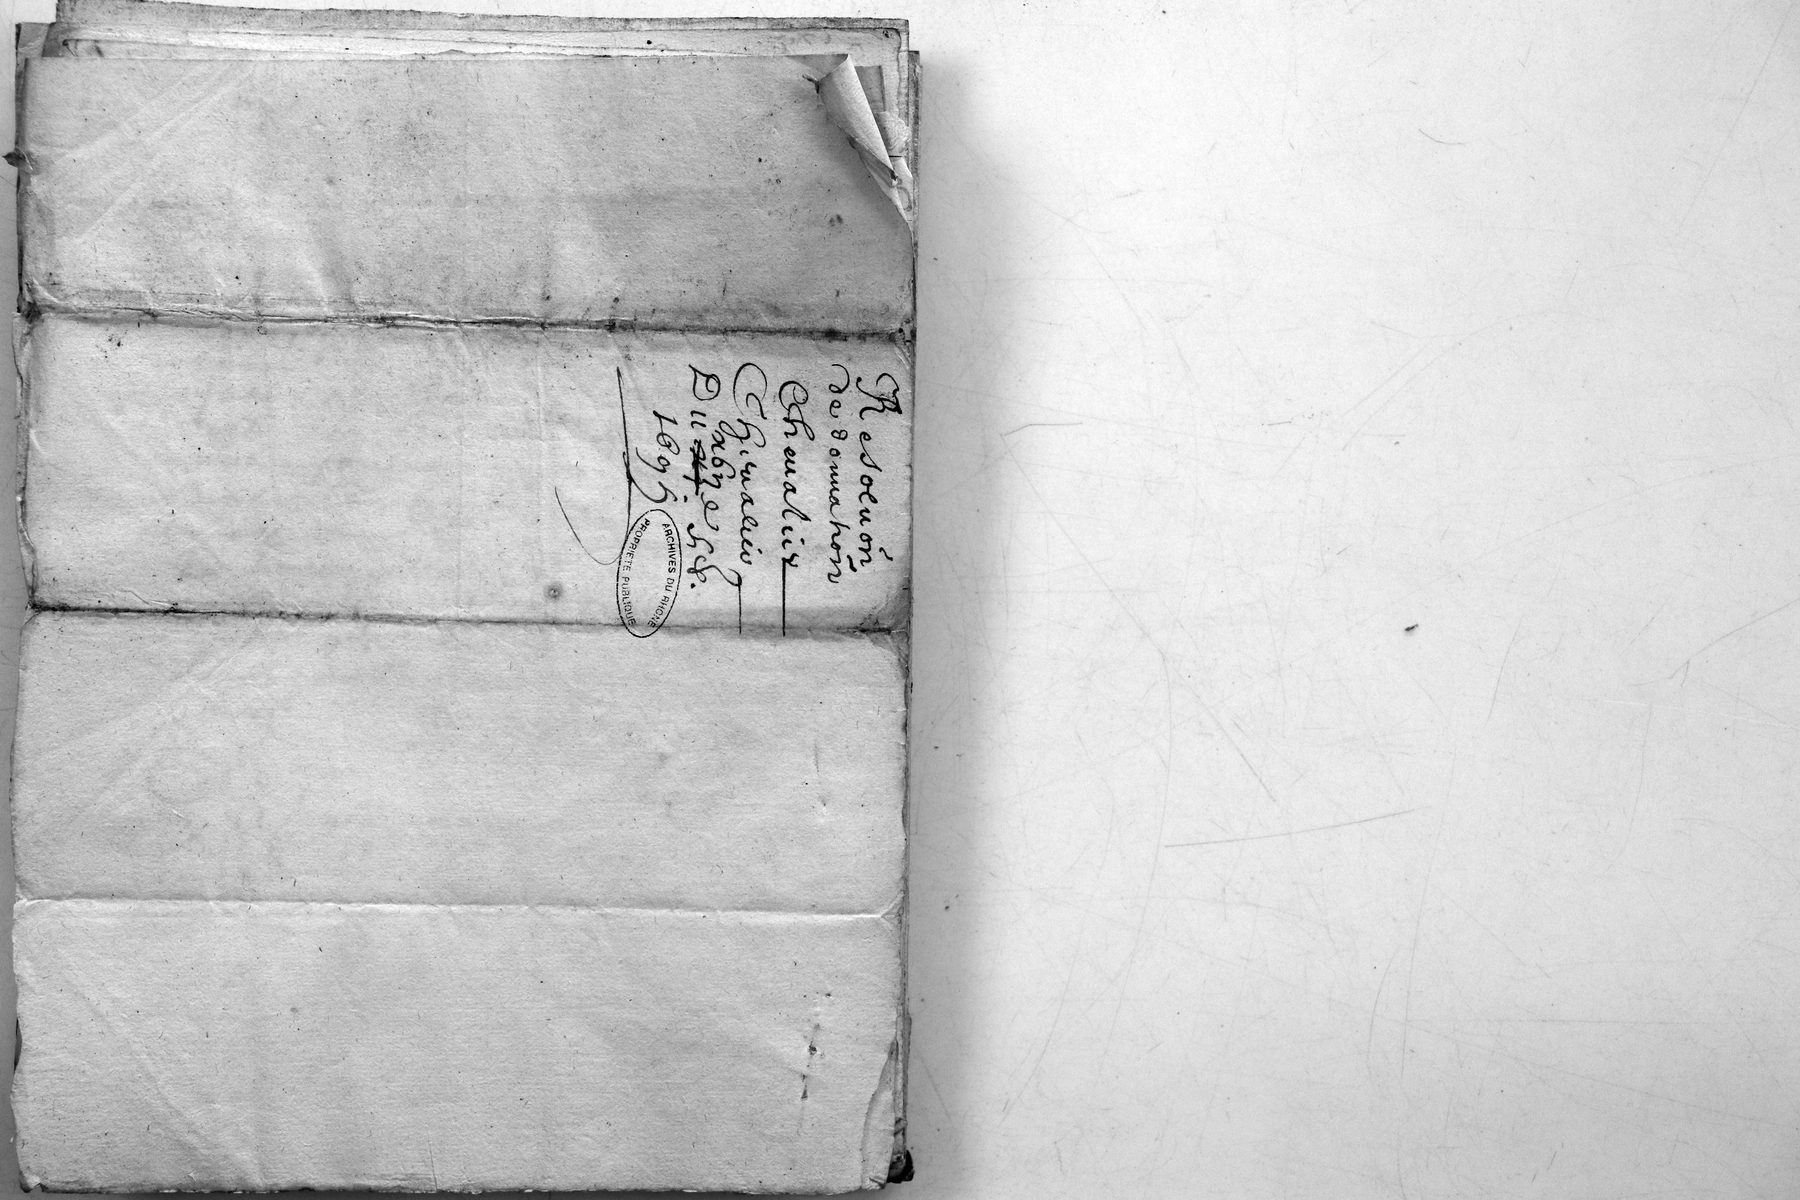 Resoluōn
de donnatiōn
Cheualier
Cheualier
Du 9bre
1695
ARCHIVES DU RHONE
PROPRIÉTÉ PUBLIQUE